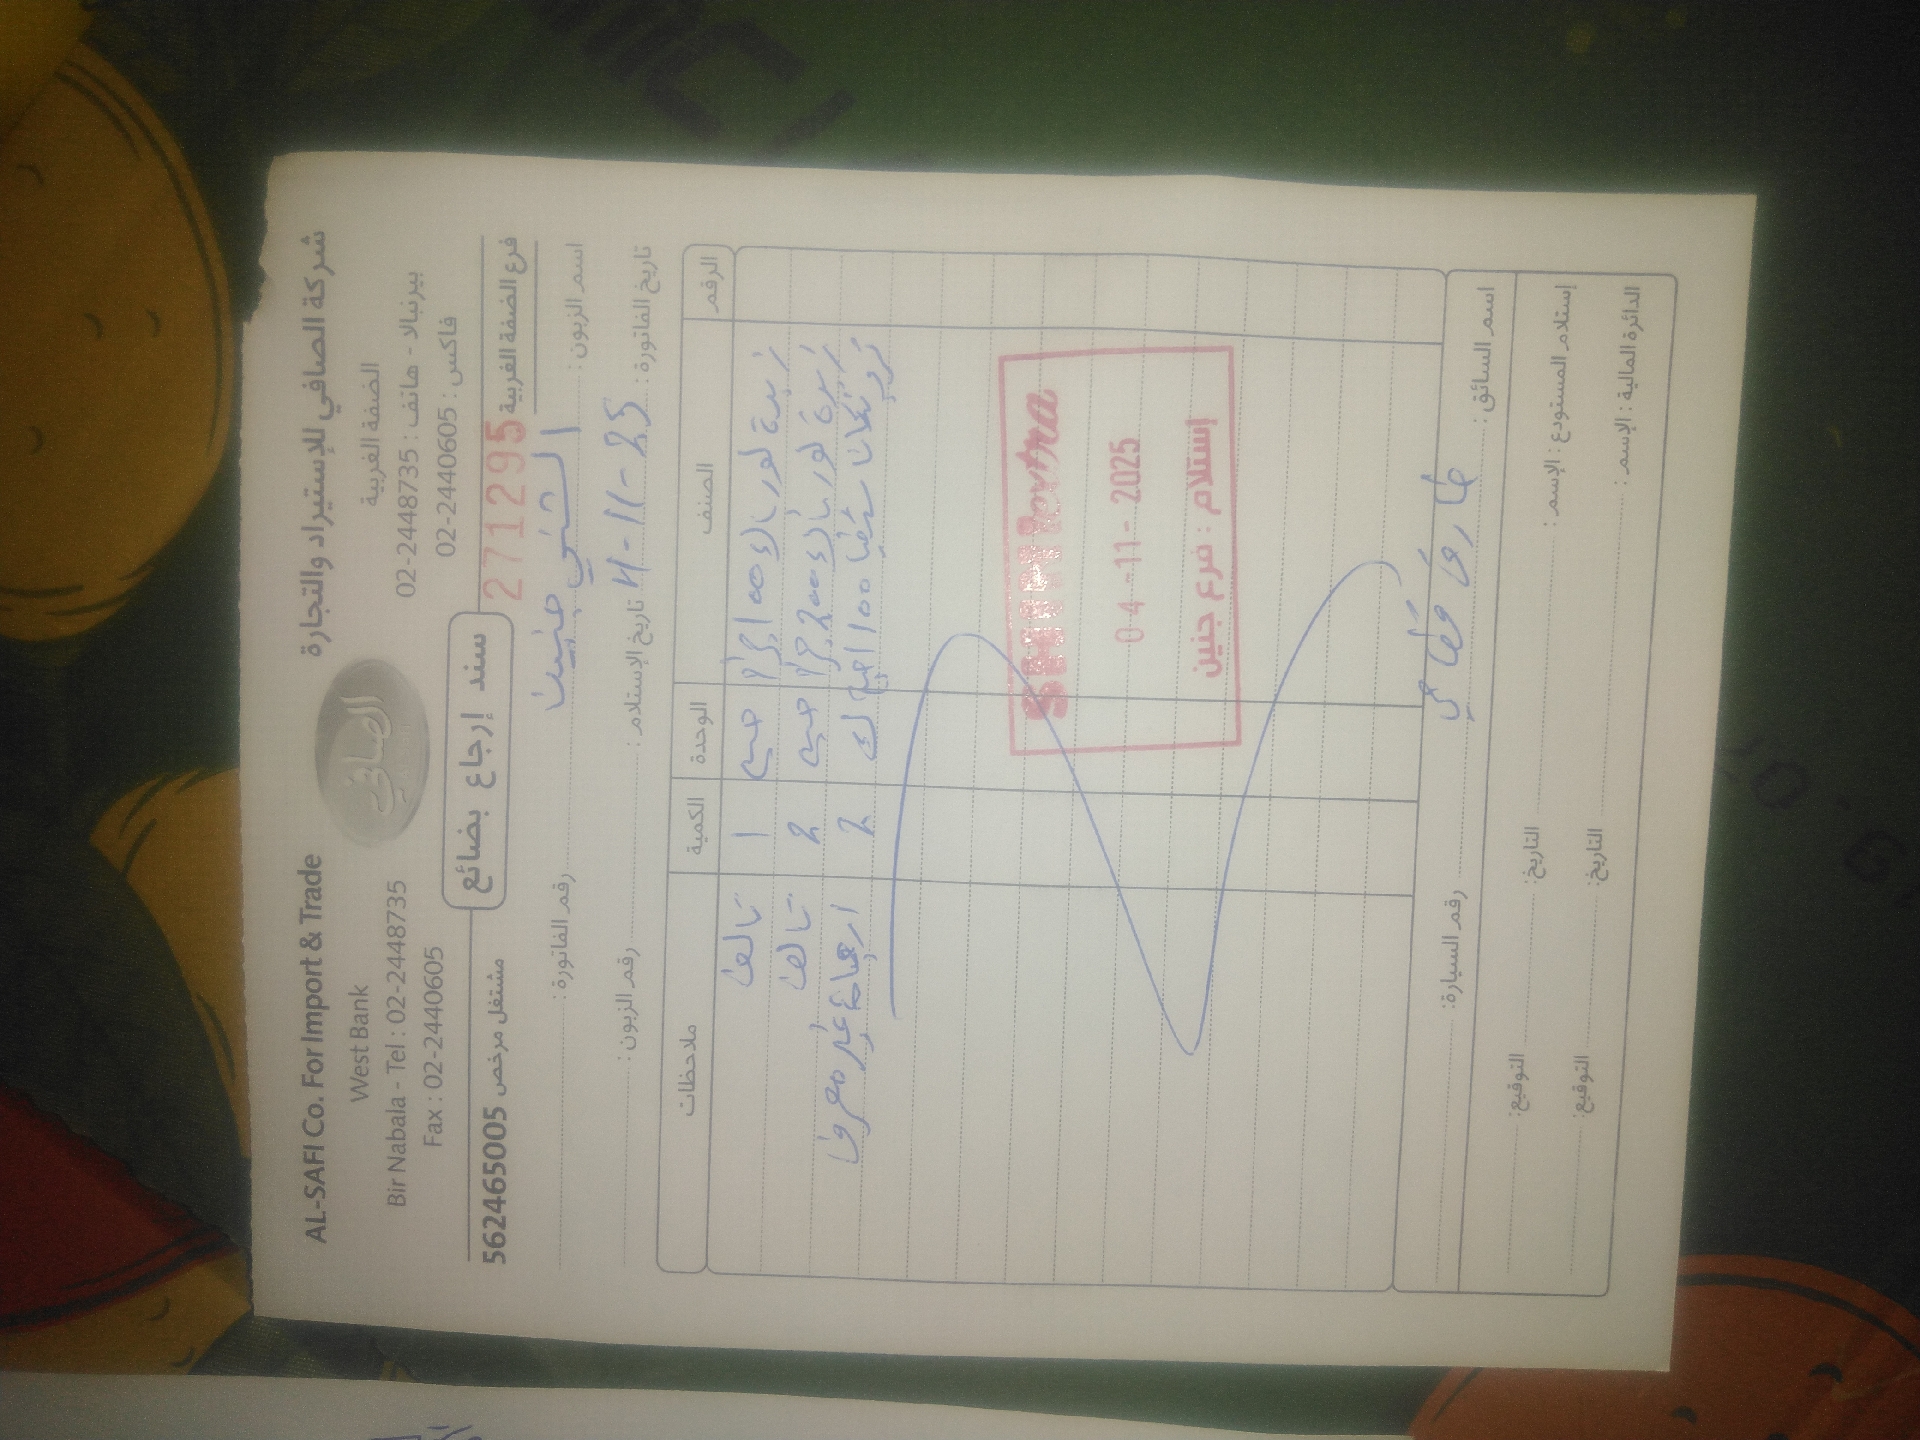 شركة الصافي للإستيراد والتجارة
الضفة الغربية
بيرنبالا - هاتف : 02-2448735
فاكس : 02-2440605
الصافي
AL-SAFI Co. For Import & Trade
West Bank
Bir Nabala - Tel : 02-2448735
Fax : 02-2440605
فرع الضفة الغربية 271295
سند إرجاع بضائع
مشتغل مرخص 562465005
اسم الزبون : الشني جنين رقم الفاتورة :
تاريخ الفاتورة : 4-11-25 تاريخ الإستلام : رقم الزبون :
الرقم الصنف الوحدة الكمية ملاحظات
زبدة لورباك 100 جرام حبه 1 تالف
زبدة لورباك 200 جرام حبه 2 تالف
100 2 ارجاع غير معروف
Santa Povtra
04-11-2025
إستلام : فرع جنين
اسم السائق : طارق رقم السيارة :
إستلام المستودع : الإسم : التاريخ : التوقيع :
الدائرة المالية : الإسم : التاريخ : التوقيع :